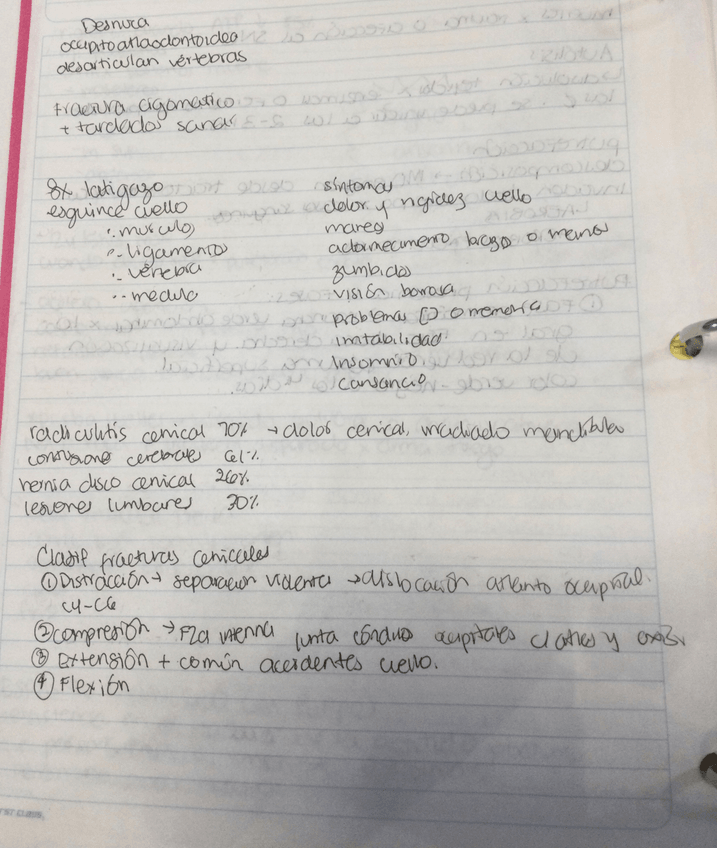 Desnuca
occipitoatlaodontoidea
desarticulan vértebras
Fractura cigomatico
+ tardados sanar
Sx latigazo
esguince cuello
músculo
ligamento
vértebra
medula
síntomas
dolor y rigidez cuello
mareo
adormecimiento brazo o manos
zumbidos
visión borrosa
problemas [] o memoria
irritabilidad
Insomnio
cansancio
radiculitis cervical 70% → dolor cervical, irradiado mandíbula
contusiones cerebrales 61%
hernia disco cervical 26%
lesiones lumbares 30%
Clasif fracturas cervicales
① Distracción → separación violenta → dislocación atlanto occipital.
C4-C6
② compresión → Fza interna junta cóndilos occipitales c/ atlas y
③ Extensión + común accidentes cuello.
④ Flexión